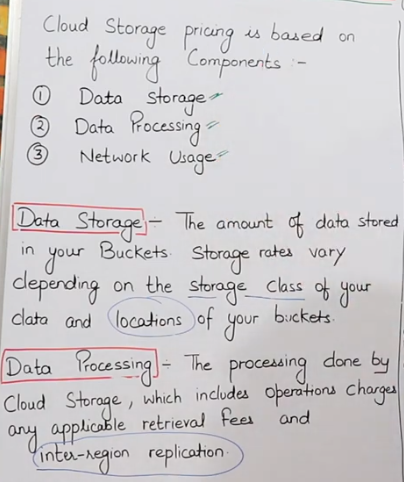 Cloud Storage pricing is based on
the following Components :-
① Data Storage
② Data Processing
③ Network Usage
Data Storage :- The amount of data stored
in your Buckets. Storage rates vary
depending on the storage class of your
data and locations of your buckets.
Data Processing :- The processing done by
Cloud Storage, which includes operations charges
any applicable retrieval fees and
inter-region replication.